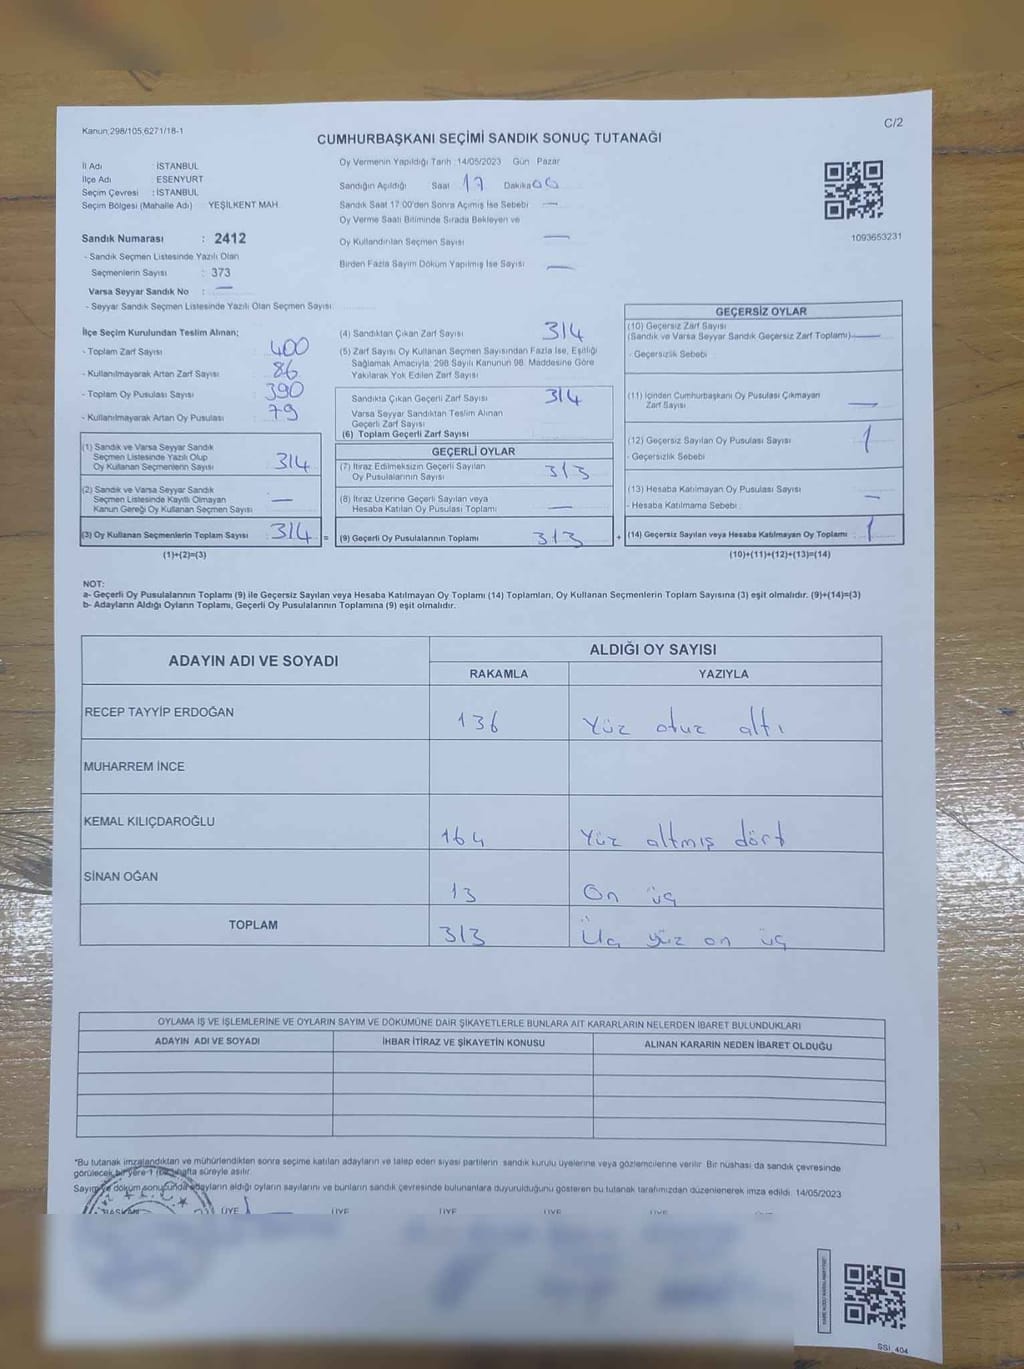 Kanun,298/105,6271/18-1
C/2
CUMHURBAŞKANI SEÇİMİ SANDIK SONUÇ TUTANAĞI
İl Adı : İSTANBUL
İlçe Adı : ESENYURT
Seçim Çevresi : İSTANBUL
Seçim Bölgesi (Mahalle Adı) YEŞİLKENT MAH.
Oy Vermenin Yapıldığı Tarih 14/05/2023 Gün Pazar
Sandığın Açıldığı Saat 17 Dakika 00
Sandık Saat 17:00'den Sonra Açımış İse Sebebi —
Oy Verme Saati Bitiminde Sırada Bekleyen ve
Oy Kullandırılan Seçmen Sayısı —
Birden Fazla Sayım Döküm Yapılmış İse Sayısı —
1093653231
Sandık Numarası : 2412
- Sandık Seçmen Listesinde Yazılı Olan
Seçmenlerin Sayısı : 373
Varsa Seyyar Sandık No : —
- Seyyar Sandık Seçmen Listesinde Yazılı Olan Seçmen Sayısı
İlçe Seçim Kurulundan Teslim Alınan;
- Toplam Zarf Sayısı 400
- Kullanılmayarak Artan Zarf Sayısı 86
- Toplam Oy Pusulası Sayısı 390
- Kullanılmayarak Artan Oy Pusulası 79
(1) Sandık ve Varsa Seyyar Sandık
Seçmen Listesinde Yazılı Olup
Oy Kullanan Seçmenlerin Sayısı 314
(2) Sandık ve Varsa Seyyar Sandık
Seçmen Listesinde Kayıtlı Olmayan
Kanun Gereği Oy Kullanan Seçmen Sayısı —
(3) Oy Kullanan Seçmenlerin Toplam Sayısı 314 =
(1)+(2)=(3)
(4) Sandıktan Çıkan Zarf Sayısı 314
(5) Zarf Sayısı Oy Kullanan Seçmen Sayısından Fazla İse, Eşitliği
Sağlamak Amacıyla; 298 Sayılı Kanunun 98. Maddesine Göre
Yakılarak Yok Edilen Zarf Sayısı
Sandıkta Çıkan Geçerli Zarf Sayısı 314
Varsa Seyyar Sandıktan Teslim Alınan
Geçerli Zarf Sayısı
(6) Toplam Geçerli Zarf Sayısı
GEÇERLİ OYLAR
(7) İtiraz Edilmeksizin Geçerli Sayılan
Oy Pusulasının Sayısı 313
(8) İtiraz Üzerine Geçerli Sayılan veya
Hesaba Katılan Oy Pusulası Toplamı —
(9) Geçerli Oy Pusulalarının Toplamı 313 +
GEÇERSİZ OYLAR
(10) Geçersiz Zarf Sayısı
(Sandık ve Varsa Seyyar Sandık Geçersiz Zarf Toplamı) —
- Geçersizlik Sebebi
(11) İçinden Cumhurbaşkanı Oy Pusulası Çıkmayan
Zarf Sayısı —
(12) Geçersiz Sayılan Oy Pusulası Sayısı 1
- Geçersizlik Sebebi
(13) Hesaba Katılmayan Oy Pusulası Sayısı —
- Hesaba Katılmama Sebebi
(14) Geçersiz Sayılan veya Hesaba Katılmayan Oy Toplamı 1
(10)+(11)+(12)+(13)=(14)
NOT:
a- Geçerli Oy Pusulalarının Toplamı (9) ile Geçersiz Sayılan veya Hesaba Katılmayan Oy Toplamı (14) Toplamları, Oy Kullanan Seçmenlerin Toplam Sayısına (3) eşit olmalıdır. (9)+(14)=(3)
b- Adayların Aldığı Oyların Toplamı, Geçerli Oy Pusulalarının Toplamına (9) eşit olmalıdır.
ADAYIN ADI VE SOYADI
ALDIĞI OY SAYISI
RAKAMLA YAZIYLA
RECEP TAYYİP ERDOĞAN 136 Yüz otuz altı
MUHARREM İNCE
KEMAL KILIÇDAROĞLU 164 Yüz altmış dört
SİNAN OĞAN 13 On üç
TOPLAM 313 Üç yüz on üç
OYLAMA İŞ VE İŞLEMLERİNE VE OYLARIN SAYIM VE DÖKÜMÜNE DAİR ŞİKAYETLERLE BUNLARA AİT KARARLARIN NELERDEN İBARET BULUNDUKLARI
ADAYIN ADI VE SOYADI İHBAR İTİRAZ VE ŞİKAYETİN KONUSU ALINAN KARARIN NEDEN İBARET OLDUĞU
*Bu tutanak imzalandıktan ve mühürlendikten sonra seçime katılan adayların ve talep eden siyasi partilerin sandık kurulu üyelerine veya gözlemcilerine verilir. Bir nüshası da sandık çevresinde
görülecek bir yere 1 (bir) hafta süreyle asılır.
Sayım ve döküm sonucunda adayların aldığı oyların sayılarını ve bunların sandık çevresinde bulunanlara duyurulduğunu gösteren bu tutanak tarafımızdan düzenlenerek imza edildi. 14/05/2023
BAŞKAN ÜYE ÜYE ÜYE ÜYE ÜYE
SSI_404